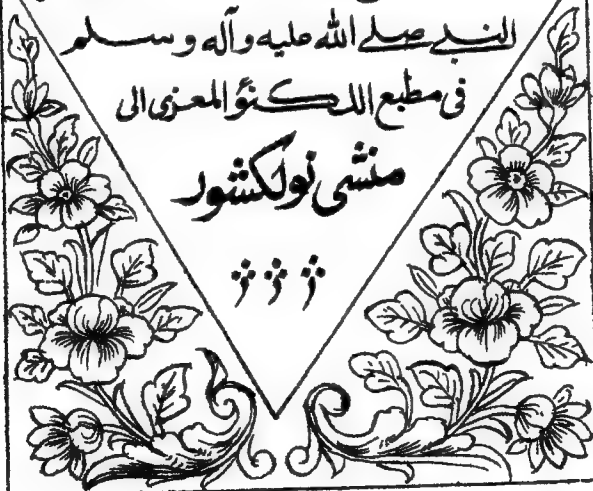 النبی صلے الله علیه وآله وسلم
فی مطبع اللکنؤ المعزی الی
منشی نولکشور